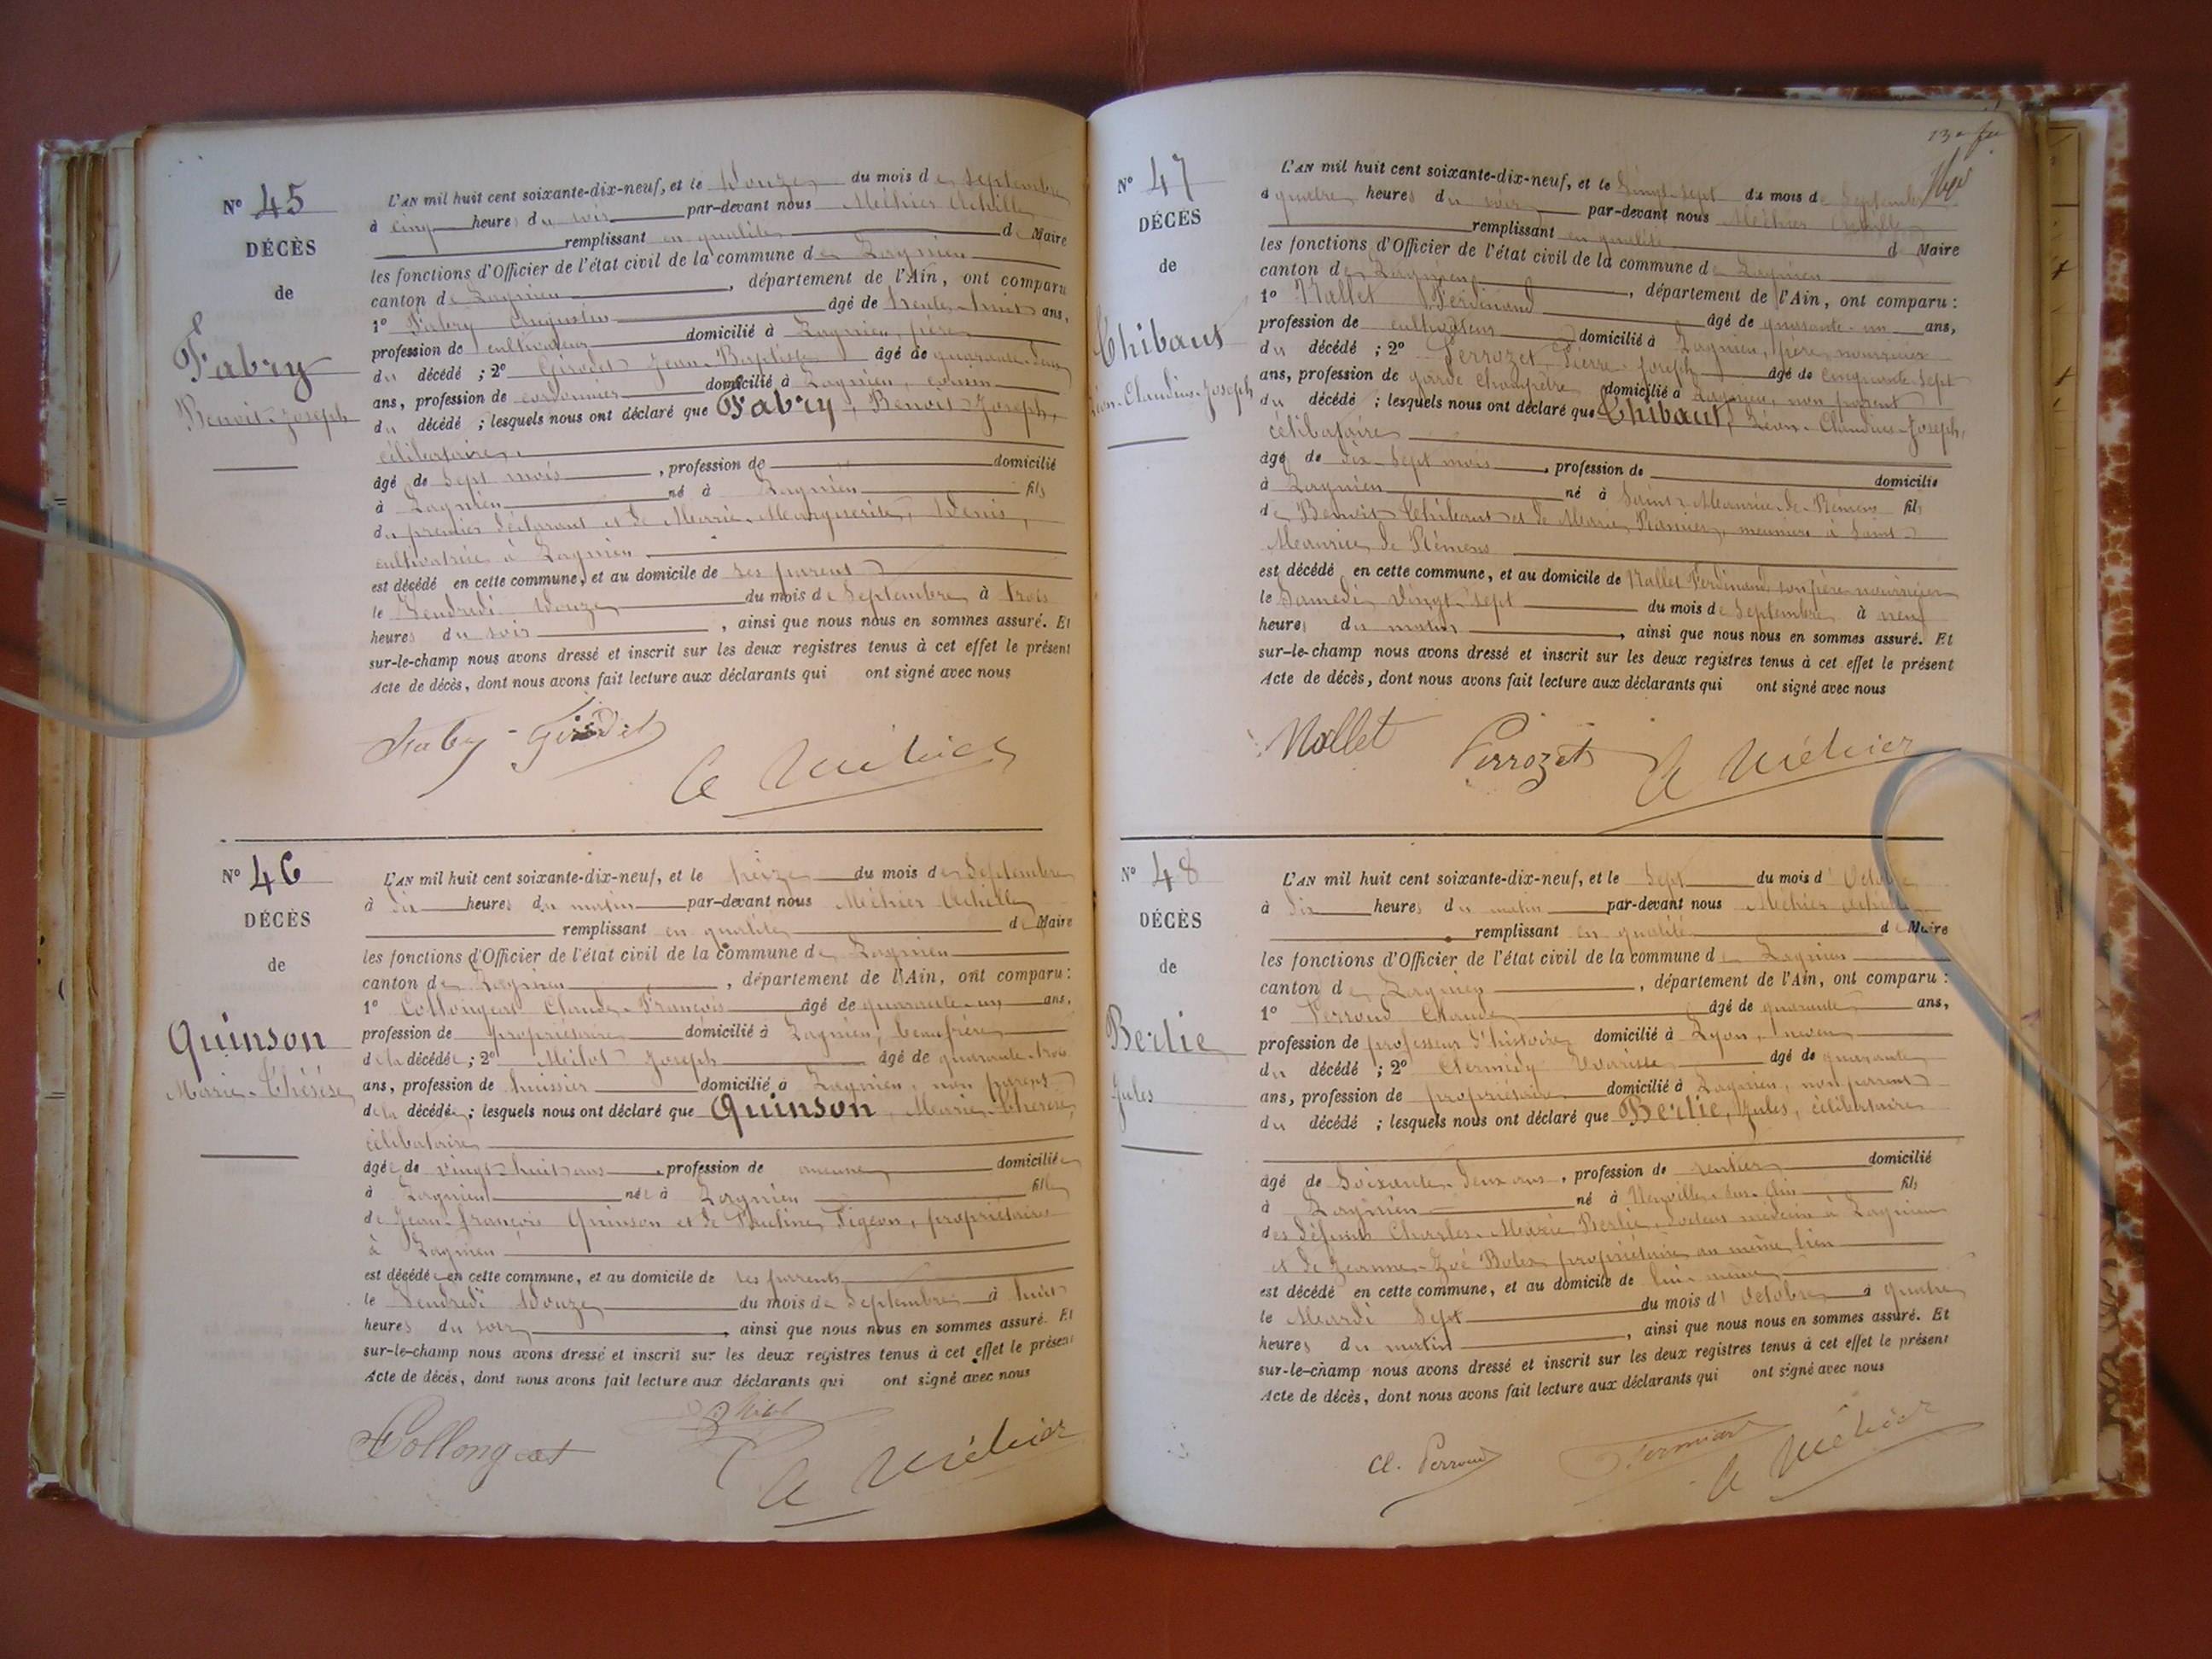 N° 45
DÉCÈS
de
Fabry
Benoit-Joseph
L'AN mil huit cent soixante-dix-neuf, et le Douze du mois de Septembre
à cinq heures du soir par-devant nous Méhier Achille
remplissant en qualité de Maire
les fonctions d'Officier de l'état civil de la commune de Lagnieu
canton de Lagnieu, département de l'Ain, ont comparu
1° Fabry Augustin âgé de trente-huit ans,
profession de cultivateur domicilié à Lagnieu, père
du décédé ; 2° Girodet Jean-Baptiste âgé de quarante-deux
ans, profession de cordonnier domicilié à Lagnieu, cousin
du décédé ; lesquels nous ont déclaré que Fabry, Benoit-Joseph,
célibataire,
âgé de Sept mois, profession de domicilié
à Lagnieu né à Lagnieu fils
du premier déclarant et de Marie-Marguerite, Denis,
cultivatrice à Lagnieu
est décédé en cette commune, et au domicile de ses parents
le Vendredi Douze du mois de Septembre à trois
heures du soir, ainsi que nous nous en sommes assuré. Et
sur-le-champ nous avons dressé et inscrit sur les deux registres tenus à cet effet le présent
Acte de décès, dont nous avons fait lecture aux déclarants qui ont signé avec nous
Fabry - Girodet
A Méhier
N° 46
DÉCÈS
de
Quinson
Marie-Thérèse
L'AN mil huit cent soixante-dix-neuf, et le treize du mois de Septembre
à dix heures du matin par-devant nous Méhier Achille
remplissant en qualité de Maire
les fonctions d'Officier de l'état civil de la commune de Lagnieu
canton de Lagnieu, département de l'Ain, ont comparu :
1° Collongeat Claude-François âgé de quarante-un ans,
profession de propriétaire domicilié à Lagnieu, beau frère
de la décédée ; 2° Milot Joseph âgé de quarante-trois
ans, profession de huissier domicilié à Lagnieu, non parent
de la décédée ; lesquels nous ont déclaré que Quinson, Marie-Thérèse,
célibataire
âgée de vingt-huit ans, profession de aucune domiciliée
à Lagnieu née à Lagnieu fille
de Jean-François Quinson et de Pauline Pigeon, propriétaires
à Lagnieu
est décédée en cette commune, et au domicile de ses parents
le Vendredi Douze du mois de Septembre à huit
heures du soir, ainsi que nous nous en sommes assuré. Et
sur-le-champ nous avons dressé et inscrit sur les deux registres tenus à cet effet le présent
Acte de décès, dont nous avons fait lecture aux déclarants qui ont signé avec nous
Collongeat
Milot
A Méhier
13e fe
N° 47
DÉCÈS
de
Thibaut
Léon-Claudius-Joseph
L'AN mil huit cent soixante-dix-neuf, et le Vingt-Sept du mois de Septembre
à quatre heures du soir par-devant nous Méhier Achille
remplissant en qualité de Maire
les fonctions d'Officier de l'état civil de la commune de Lagnieu
canton de Lagnieu, département de l'Ain, ont comparu :
1° Nallet Ferdinand âgé de quarante-un ans,
profession de cultivateur domicilié à Lagnieu, père nourricier
du décédé ; 2° Perrozet Pierre-Joseph âgé de cinquante-sept
ans, profession de garde champêtre domicilié à Lagnieu, non parent
du décédé ; lesquels nous ont déclaré que Thibaut, Léon-Claudius-Joseph,
célibataire
âgé de dix-sept mois, profession de domicilié
à Lagnieu né à Saint-Maurice-de-Rémens fils
de Benoit Thibaut et de Marie, meuniers à Saint-
Maurice de Rémens
est décédé en cette commune, et au domicile de Nallet Ferdinand son père nourricier
le Samedi Vingt-sept du mois de Septembre à neuf
heures du matin, ainsi que nous nous en sommes assuré. Et
sur-le-champ nous avons dressé et inscrit sur les deux registres tenus à cet effet le présent
Acte de décès, dont nous avons fait lecture aux déclarants qui ont signé avec nous
Nallet Perrozet A Méhier
N° 48
DÉCÈS
de
Berlie
Jules
L'AN mil huit cent soixante-dix-neuf, et le Sept du mois d'Octobre
à dix heures du matin par-devant nous Méhier Achille
remplissant en qualité de Maire
les fonctions d'Officier de l'état civil de la commune de Lagnieu
canton de Lagnieu, département de l'Ain, ont comparu :
1° Perroud Claude âgé de quarante ans,
profession de professeur d'histoire domicilié à Lyon, neveu
du décédé ; 2° âgé de quarante
ans, profession de propriétaire domicilié à Lagnieu, non parent
du décédé ; lesquels nous ont déclaré que Berlie, Jules, célibataire
âgé de Soixante-deux ans, profession de rentier domicilié
à Lagnieu né à Neuville-sur-Ain fils
des défunts Charles-Marie Berlie, docteur médecin à Lagnieu
et de Jeanne-Zoé propriétaire au même lieu
est décédé en cette commune, et au domicile de lui-même
le Mardi Sept du mois d'Octobre à quatre
heures du matin, ainsi que nous nous en sommes assuré. Et
sur-le-champ nous avons dressé et inscrit sur les deux registres tenus à cet effet le présent
Acte de décès, dont nous avons fait lecture aux déclarants qui ont signé avec nous
Cl. Perroud
A Méhier